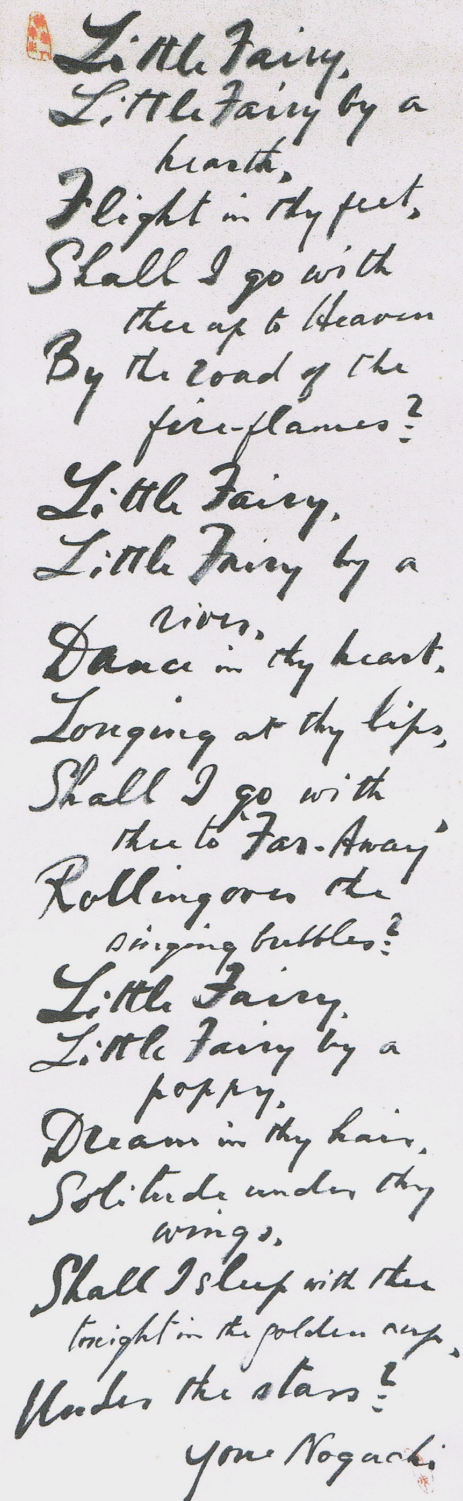 Little Fairy,
Little Fairy by a
hearth,
Flight in thy feet,
Shall I go with
thee up to Heaven
By the road of the
fire-flames?
Little Fairy,
Little Fairy by a
river,
Dance in thy heart,
Longing at thy lips,
Shall I go with
thee to "Far-Away"
Rolling over the
singing bubbles?
Little Fairy,
Little Fairy by a
poppy,
Dream in thy hair,
Solitude under thy
wings,
Shall I sleep with thee
tonight in the golden cup,
Under the stars?
Yone Noguchi